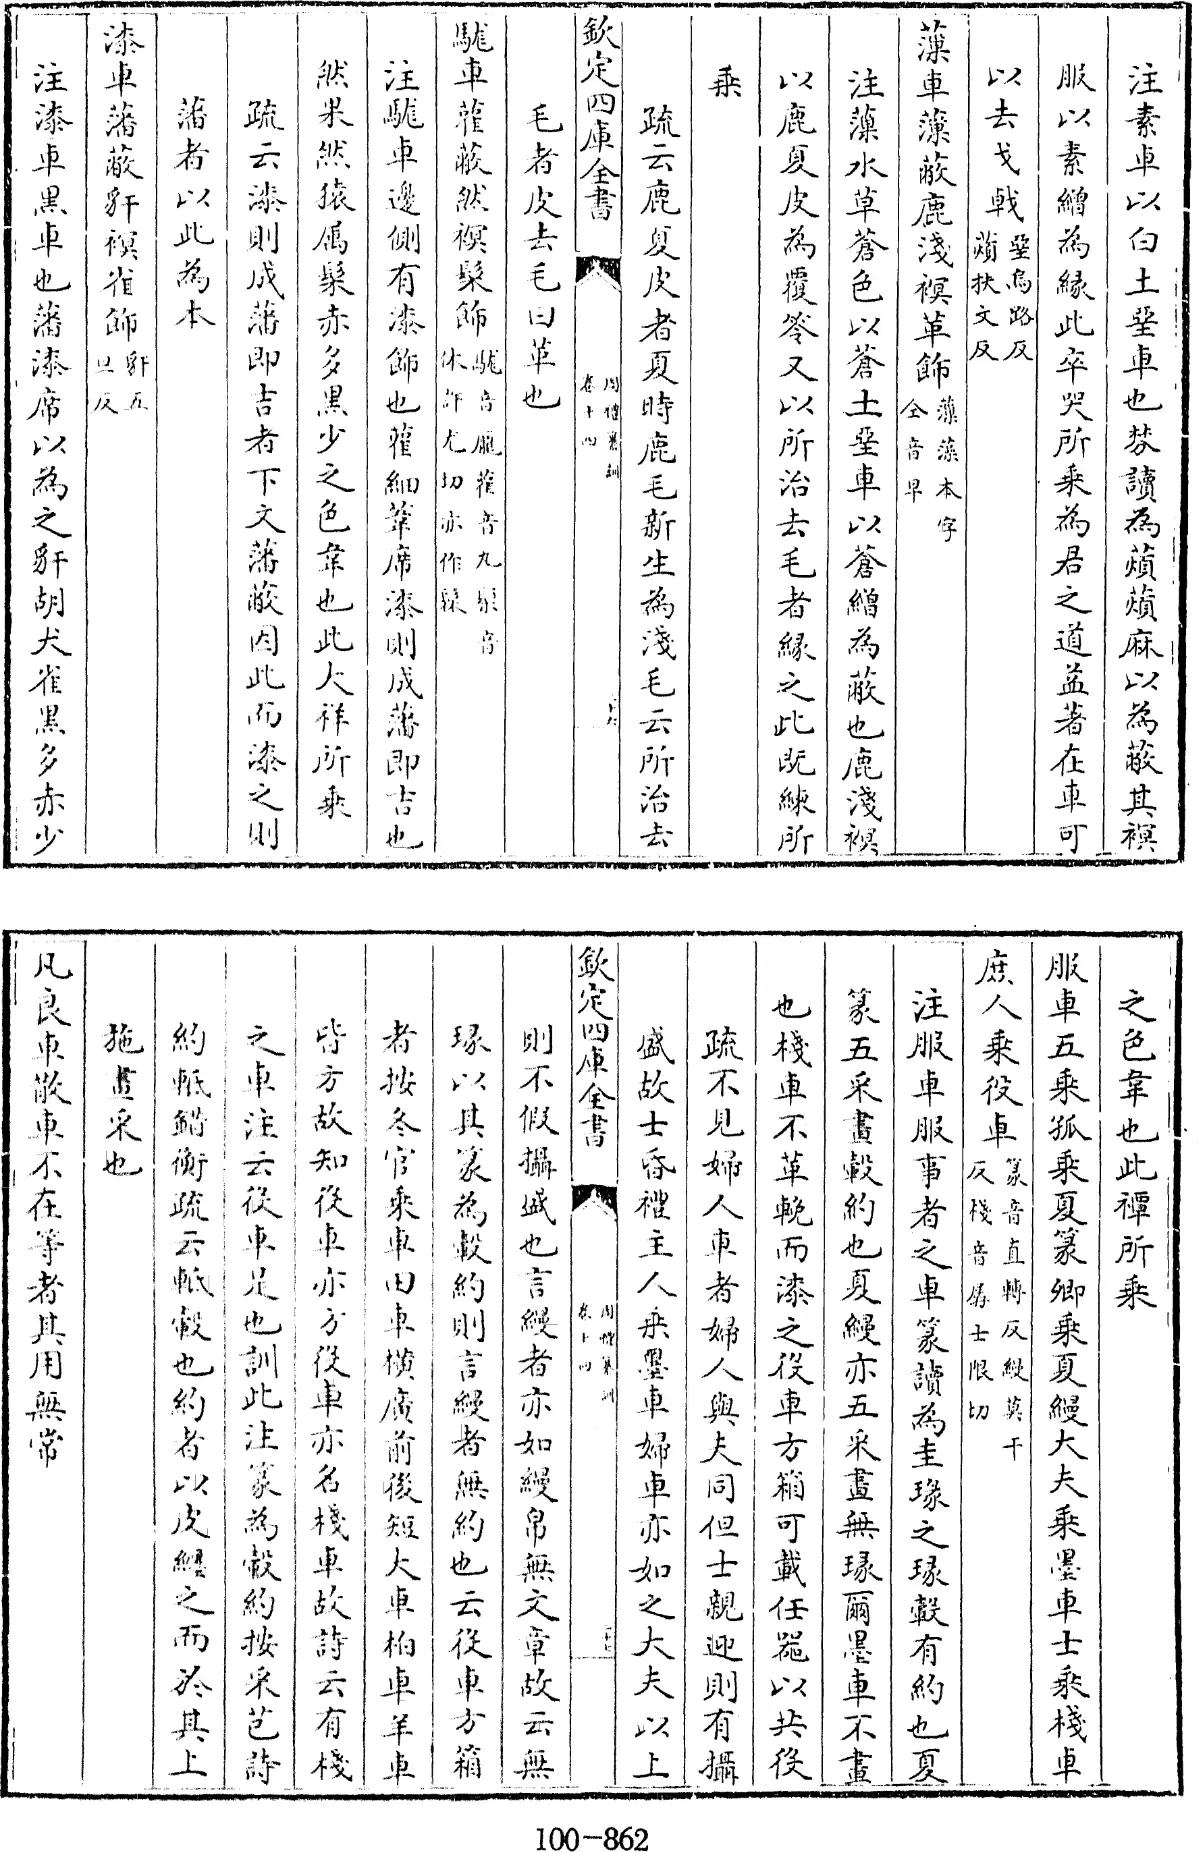 注素車以白土堊車也棼讀為薠薠麻以為蔽其䙝
服以素繒為緣此卒哭所乗為君之道益著在車可
以去戈戟堊烏路反薠扶文反
薻車薻蔽鹿淺䙝革飾薻藻本字仝音早
注薻水草蒼色以蒼土堊車以蒼繒為蔽也鹿淺䙝
以鹿夏皮為覆笭又以所治去毛者緣之此既練所
乗
疏云鹿夏皮者夏時鹿毛新生為淺毛云所治去
欽定四庫全書 周禮纂訓 卷十四
毛者皮去毛曰革也
駹車雚蔽然䙝髹飾駹音龎雚音丸髹音休許尤切亦作髤
注駹車邊側有漆飾也雚細葦席漆則成藩即吉也
然果然猿屬髹赤多黑少之色韋也此大祥所乗
疏云漆則成藩即吉者下文藩蔽因此而漆之則
藩者以此為本
漆車藩蔽豻䙝雀飾豻五旦反
注漆車黒車也藩漆席以為之豻胡犬雀黒多赤少
之色韋也此禫所乗
服車五乗孤乗夏篆卿乗夏縵大夫乗墨車士乗棧車
庶人乗役車篆音直轉反縵莫干反棧音孱士限切
注服車服事者之車篆讀為圭瑑之瑑轂有約也夏
篆五采畫轂約也夏縵亦五采畫無瑑爾墨車不畫
也棧車不革輓而漆之役車方箱可載任器以共役
疏不見婦人車者婦人與夫同但士親迎則有攝
盛故士昏禮主人乗墨車婦車亦如之大夫以上
欽定四庫全書 周禮纂訓 卷十四
則不假攝盛也言縵者亦如縵帛無文章故云無
瑑以其篆為轂約則言縵者無約也云役車方箱
者按冬官乗車田車横廣前後短大車柏車羊車
皆方故知役車亦方役車亦名棧車故詩云有棧
之車注云役車是也訓此注篆為轂約按采芑詩
約軝錯衡疏云軝轂也約者以皮纒之而於其上
施畫采也
凡良車散車不在等者其用無常
100-862